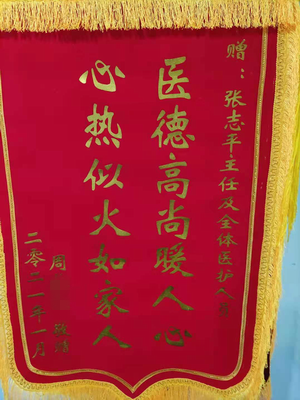 赠：张志平主任及全体医护人员
医德高尚暖人心
心热似火如家人
周 敬赠
二零二一年一月